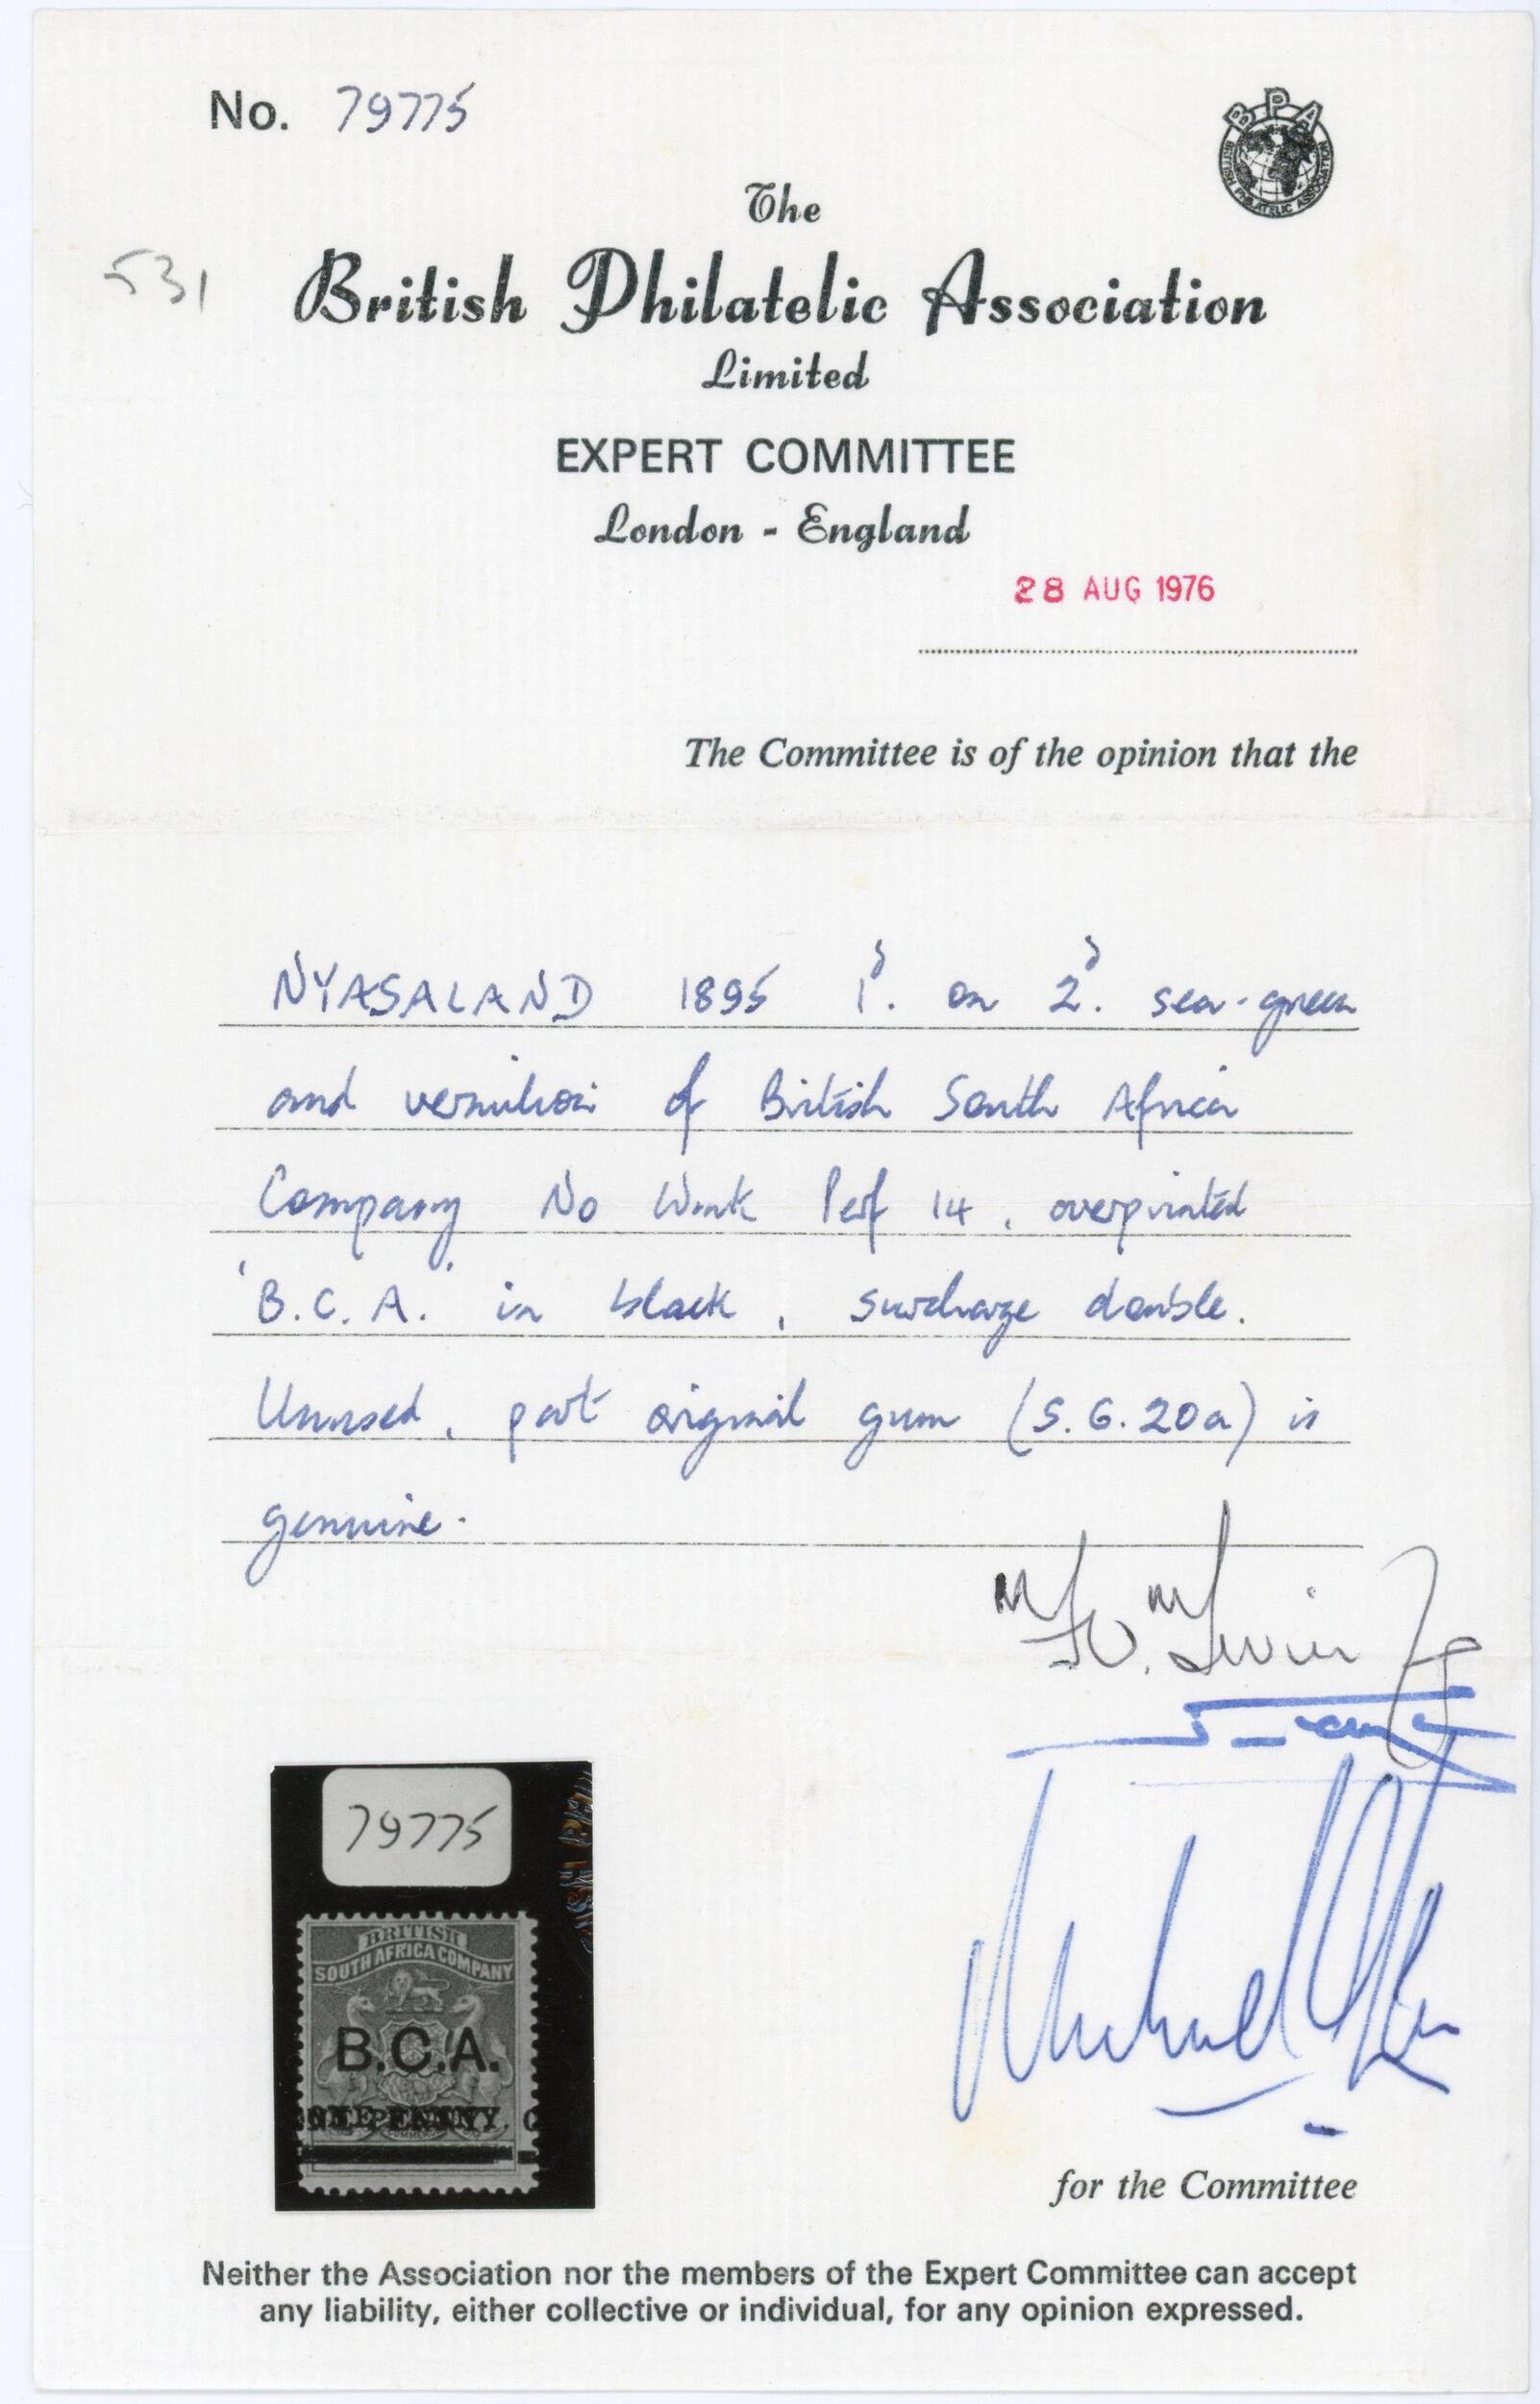 No. 79775
BPA
BRITISH PHILATELIC ASSOCIATION
The
531
British Philatelic Association
Limited
EXPERT COMMITTEE
London - England
28 AUG 1976
The Committee is of the opinion that the
NYASALAND 1895 1d. on 2d. sea-green
and vermilion of British South Africa
Company No Wmk Perf 14, overprinted
'B.C.A.' in black, surcharge double.
Unused, part original gum (S.G.20a) is
genuine.
79775
BRITISH
SOUTH AFRICA COMPANY
B.C.A.
ONE PENNY.
for the Committee
Neither the Association nor the members of the Expert Committee can accept
any liability, either collective or individual, for any opinion expressed.